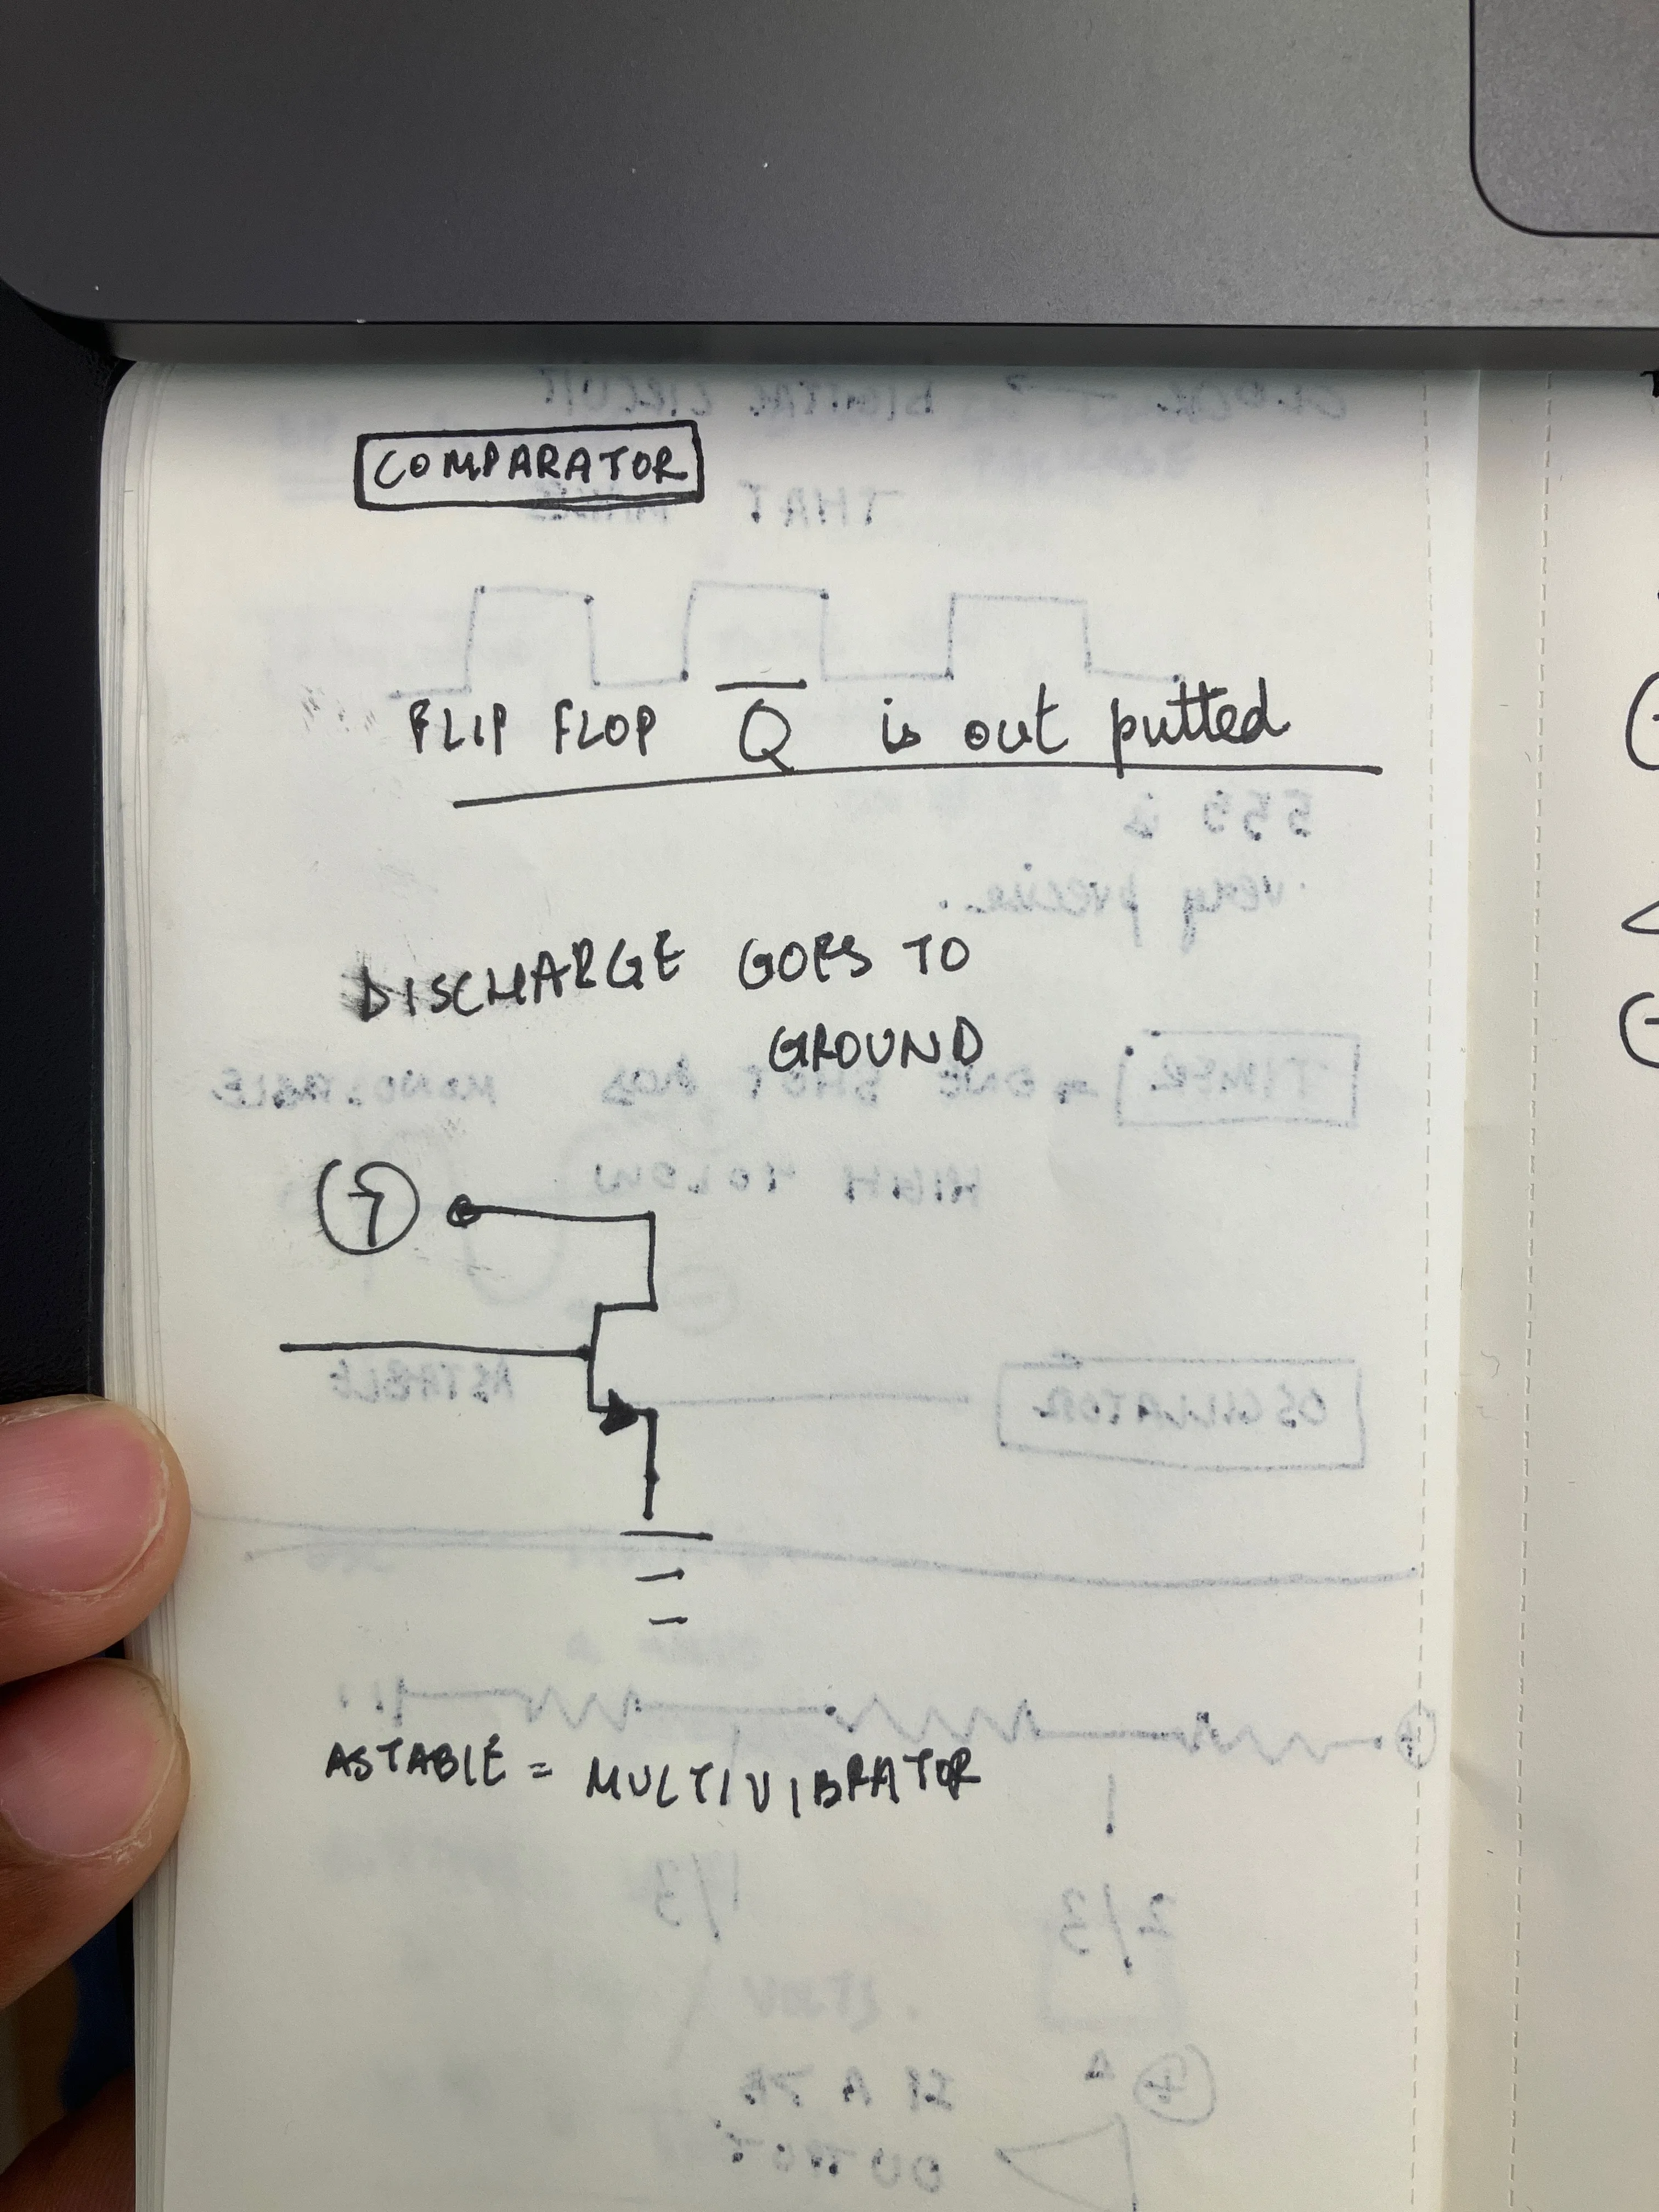 COMPARATOR
FLIP FLOP Q̅ is out putted
DISCHARGE GOES TO
GROUND
7
ASTABLE = MULTIVIBRATOR